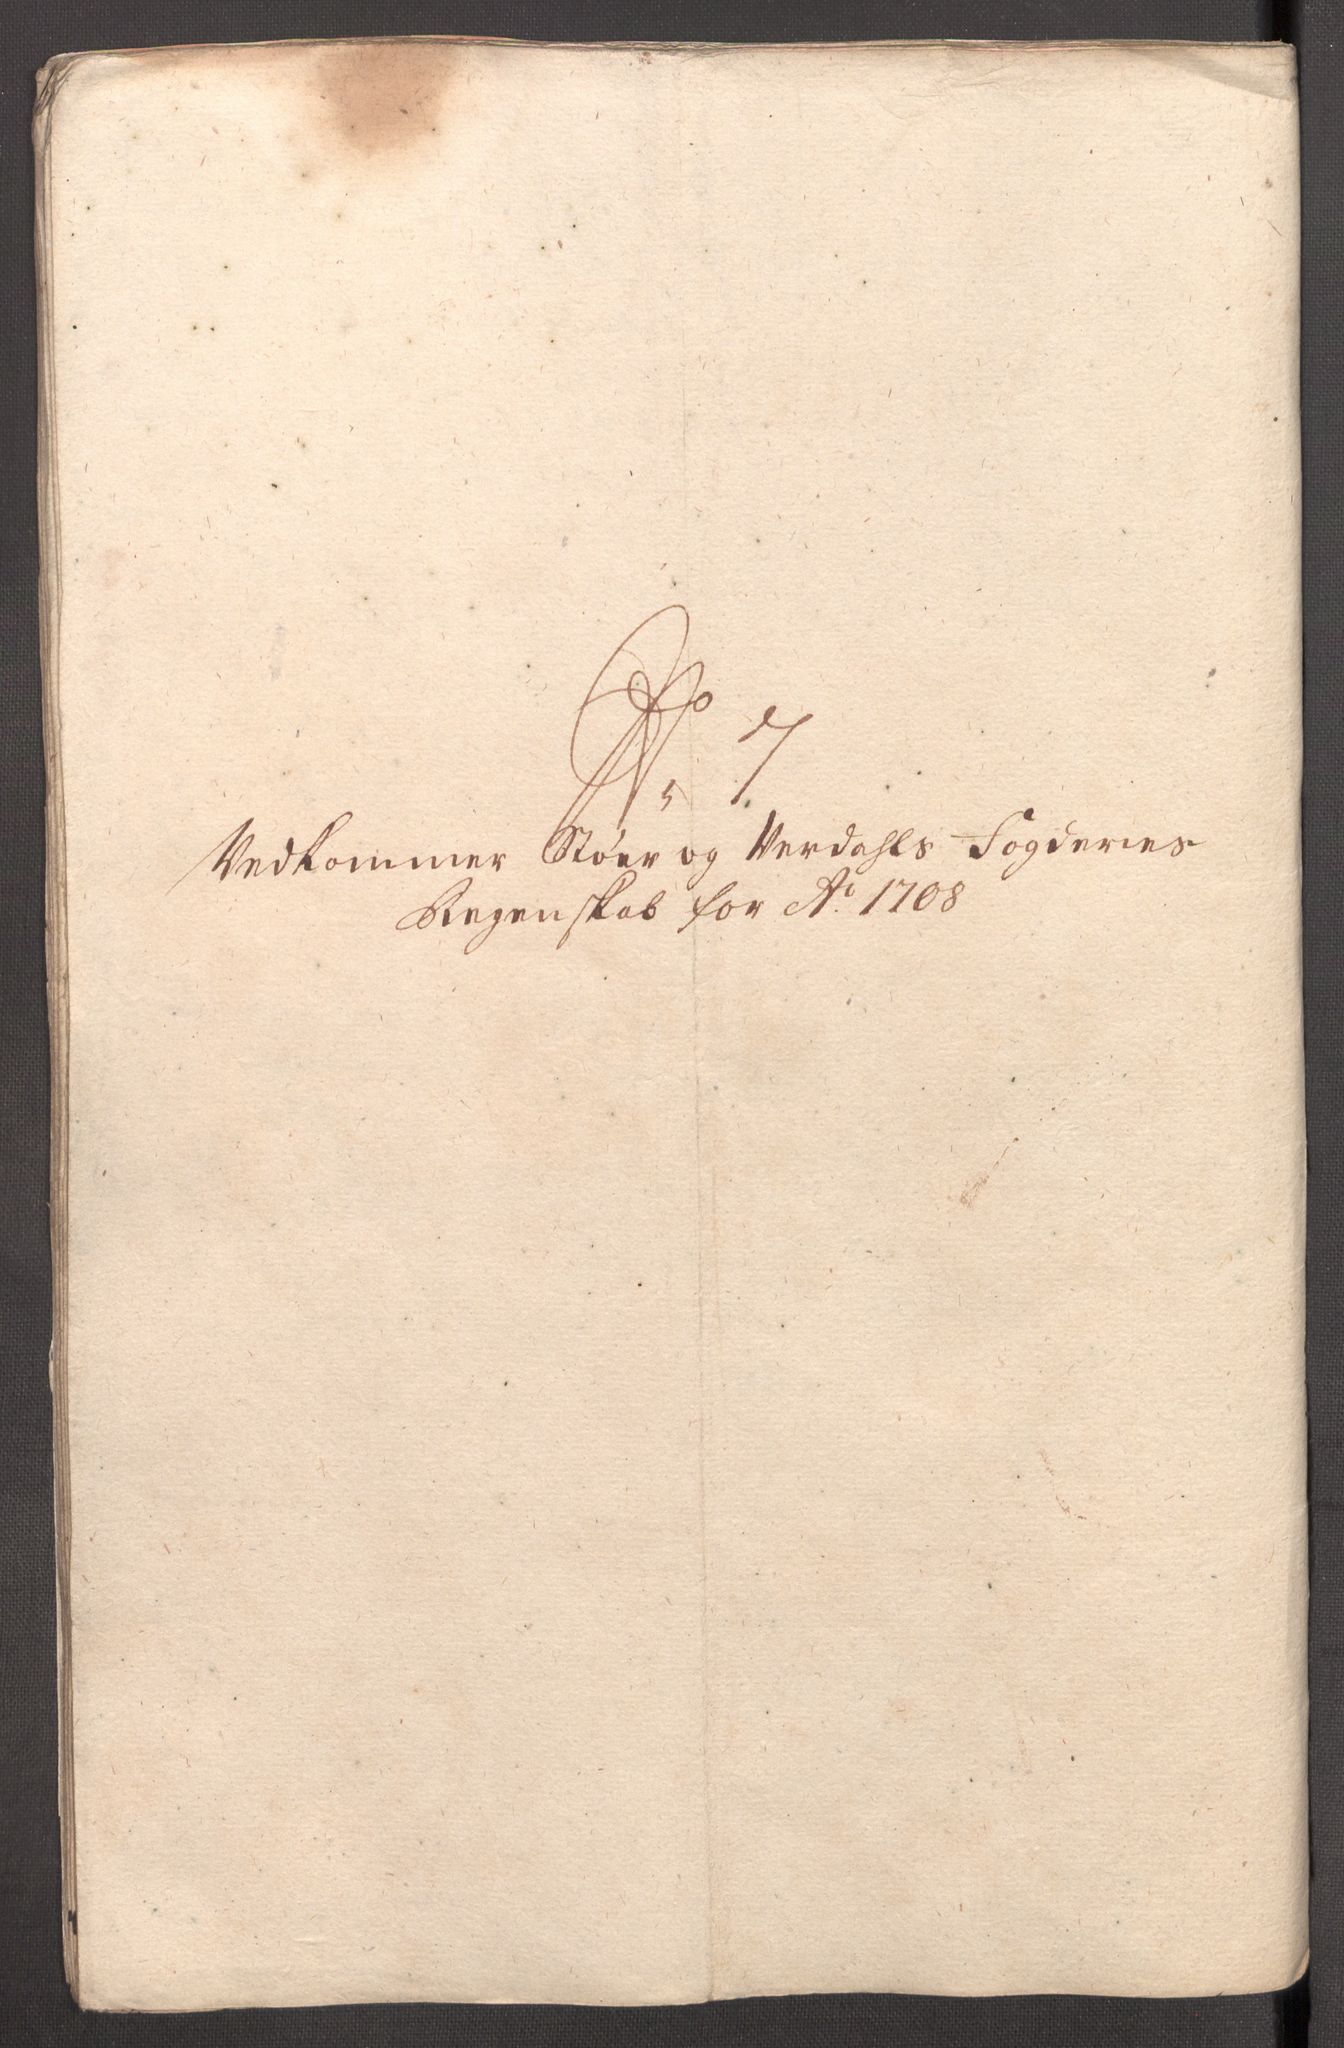 No 7
Vedkommer Støer og Verdahls Fogderies
Regenskab for Ao 1708